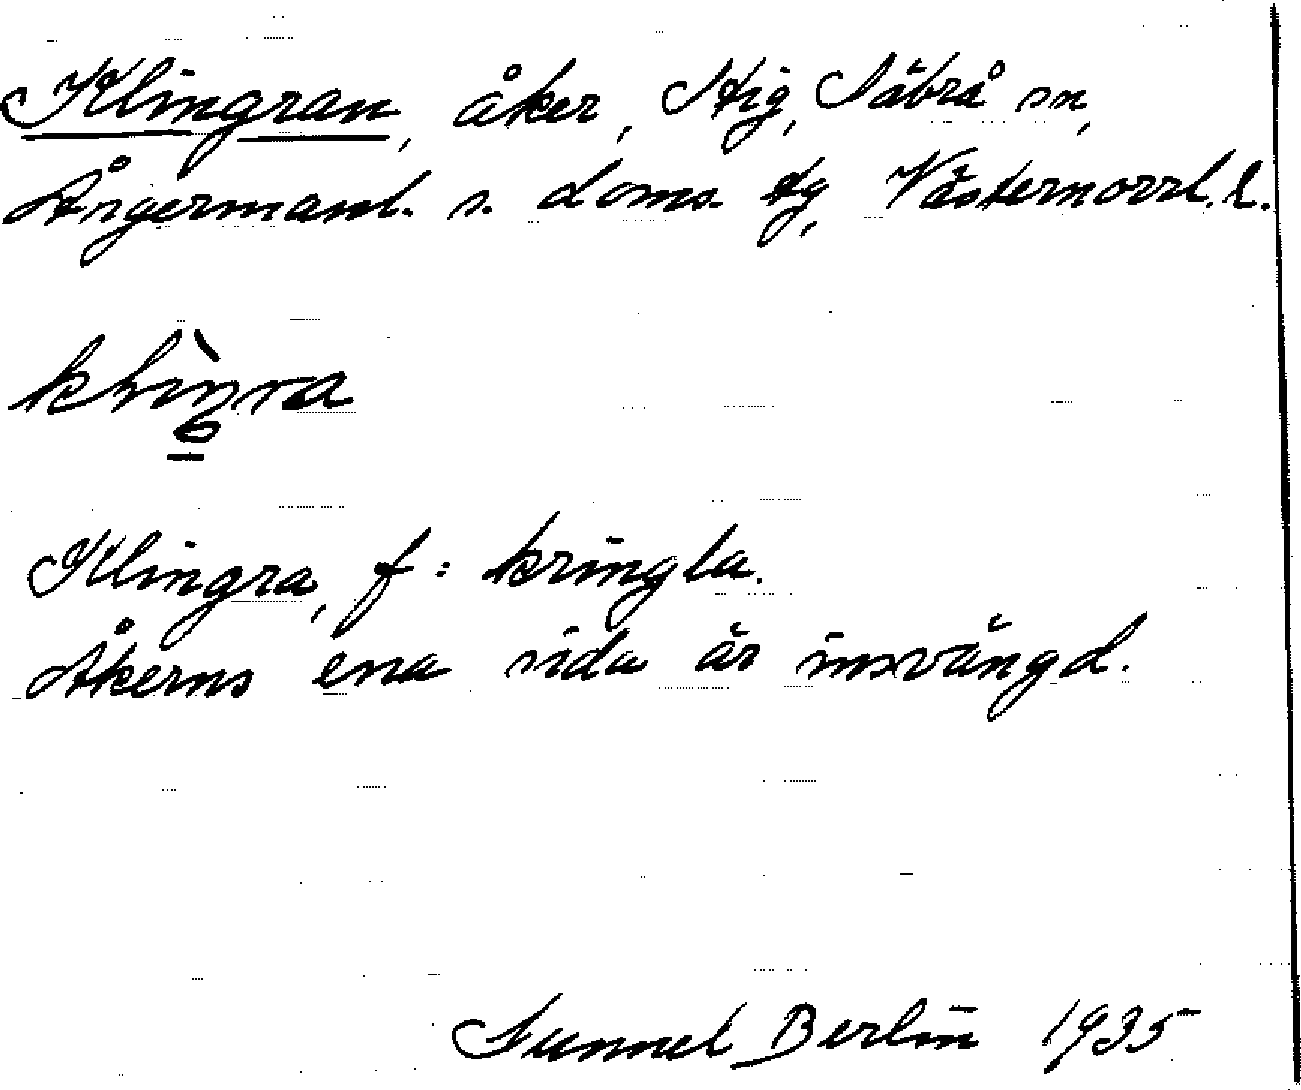 Klingran, åker, Stig, Säbrå sn,
Ångermanl. s. doms. tg, Västernorrl. l.
Klingra, f = kringla.
Åkerns ena sida är insvängd.
Gunnel Berlin 1935